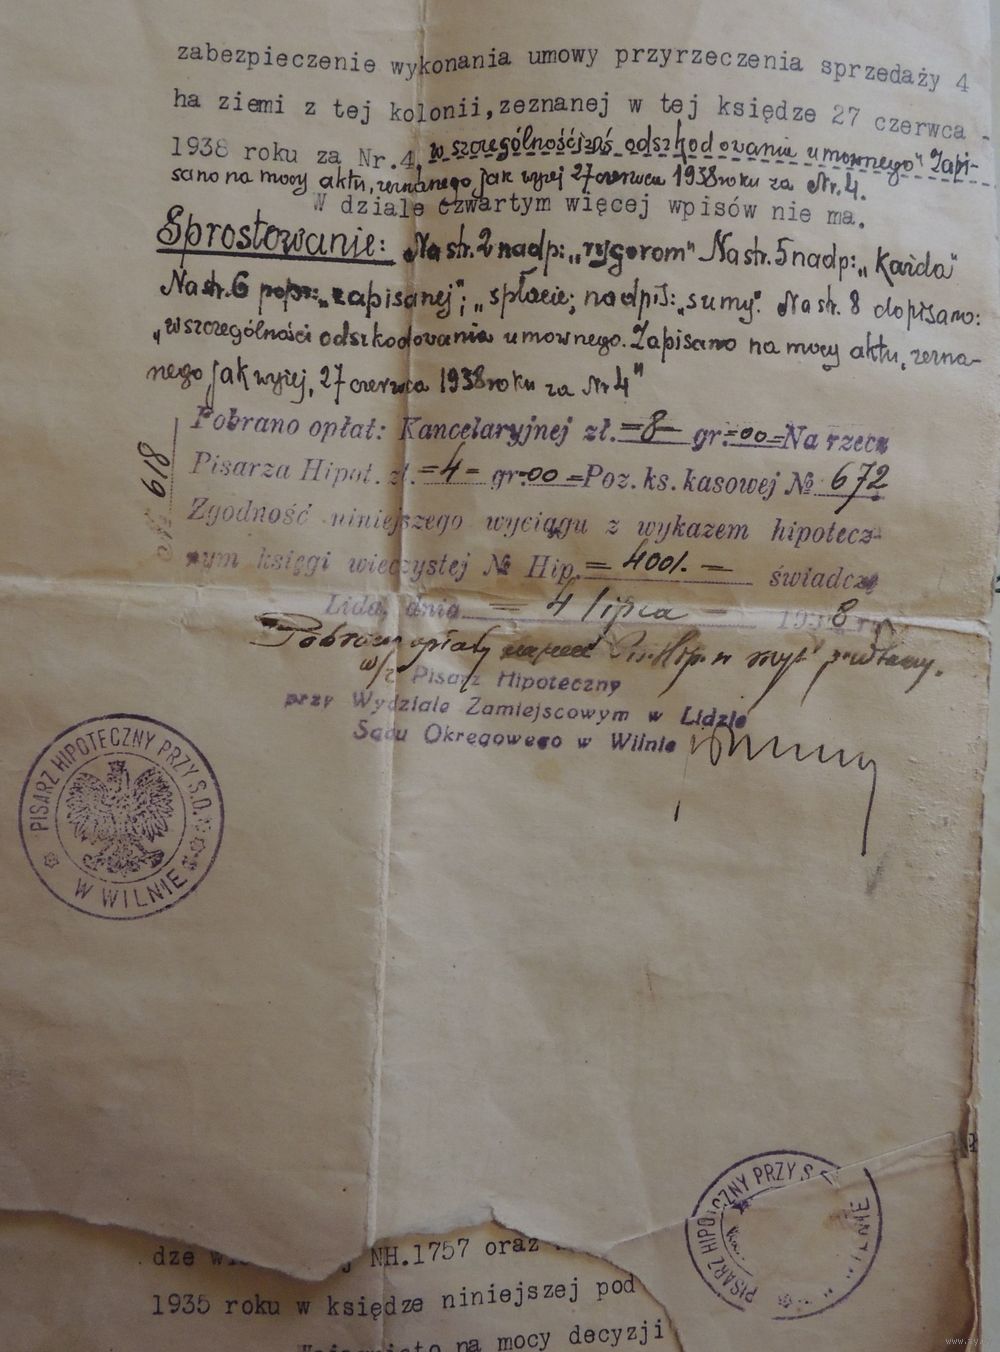 zabezpieczenie wykonania umowy przyrzeczenia sprzedaży 4
ha ziemi z tej kolonii, zeznanej w tej księdze 27 czerwca -
1938 roku za Nr.4, w szczególności zaś odszkodowania umownego" Zapi-
sano na mocy aktu, zeznanego jak wyżej 27 czerwca 1938 roku za Nr. 4.
W dziale czwartym więcej wpisów nie ma.
Sprostowanie: Na str. 2 nadp: „rygorom" Na str. 5 nadp: „Każda"
Na str. 6 popr: „zapisanej"; „spłacie; nadpis: „sumy". Na str. 8 dopisano:
„w szczególności odszkodowania umownego. Zapisano na mocy aktu, zezna-
nego jak wyżej, 27 czerwca 1938 roku za Nr 4"
Pobrano opłat: Kancelaryjnej zł. =8— gr. =00= Na rzecz
Pisarza Hipot. zł. =4= gr. =00= Poz. ks. kasowej № 672
618
Zgodność niniejszego wyciągu z wykazem hipotecz-
nym księgi wieczystej № Hip. = 4001. = świadczę
Lida, dnia = 4 lipca — 1938 r.
Pobrano opłaty
w/z Pisarz Hipoteczny
przy Wydziale Zamiejscowym w Lidzie
Sądu Okręgowego w Wilnie
PISARZ HIPOTECZNY PRZY S.O.
W WILNIE
PISARZ HIPOTECZNY PRZY S.
dze NH.1757 oraz
1935 roku w księdze niniejszej pod
na mocy decyzji